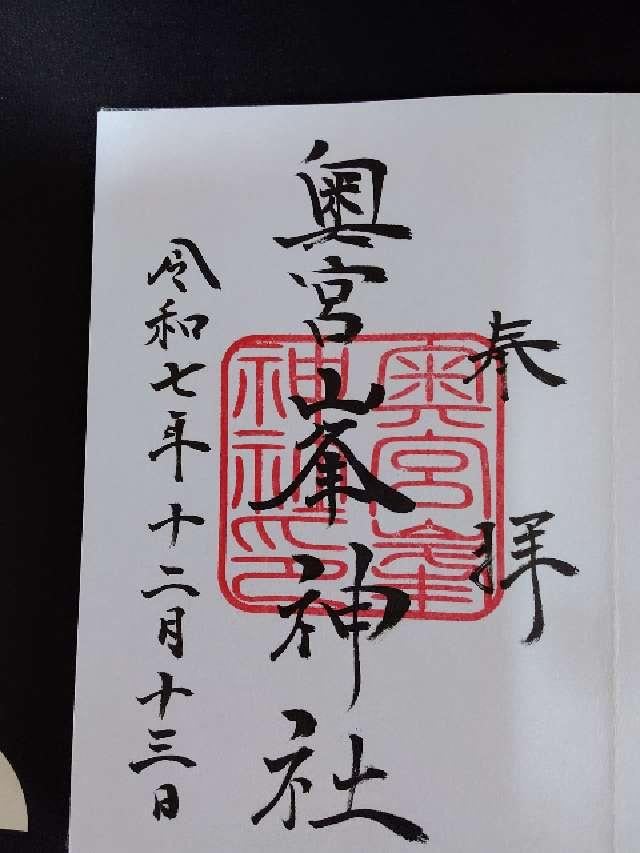 奉拝
奥宮峯神社
奥宮峯
神社印
令和七年十二月十三日